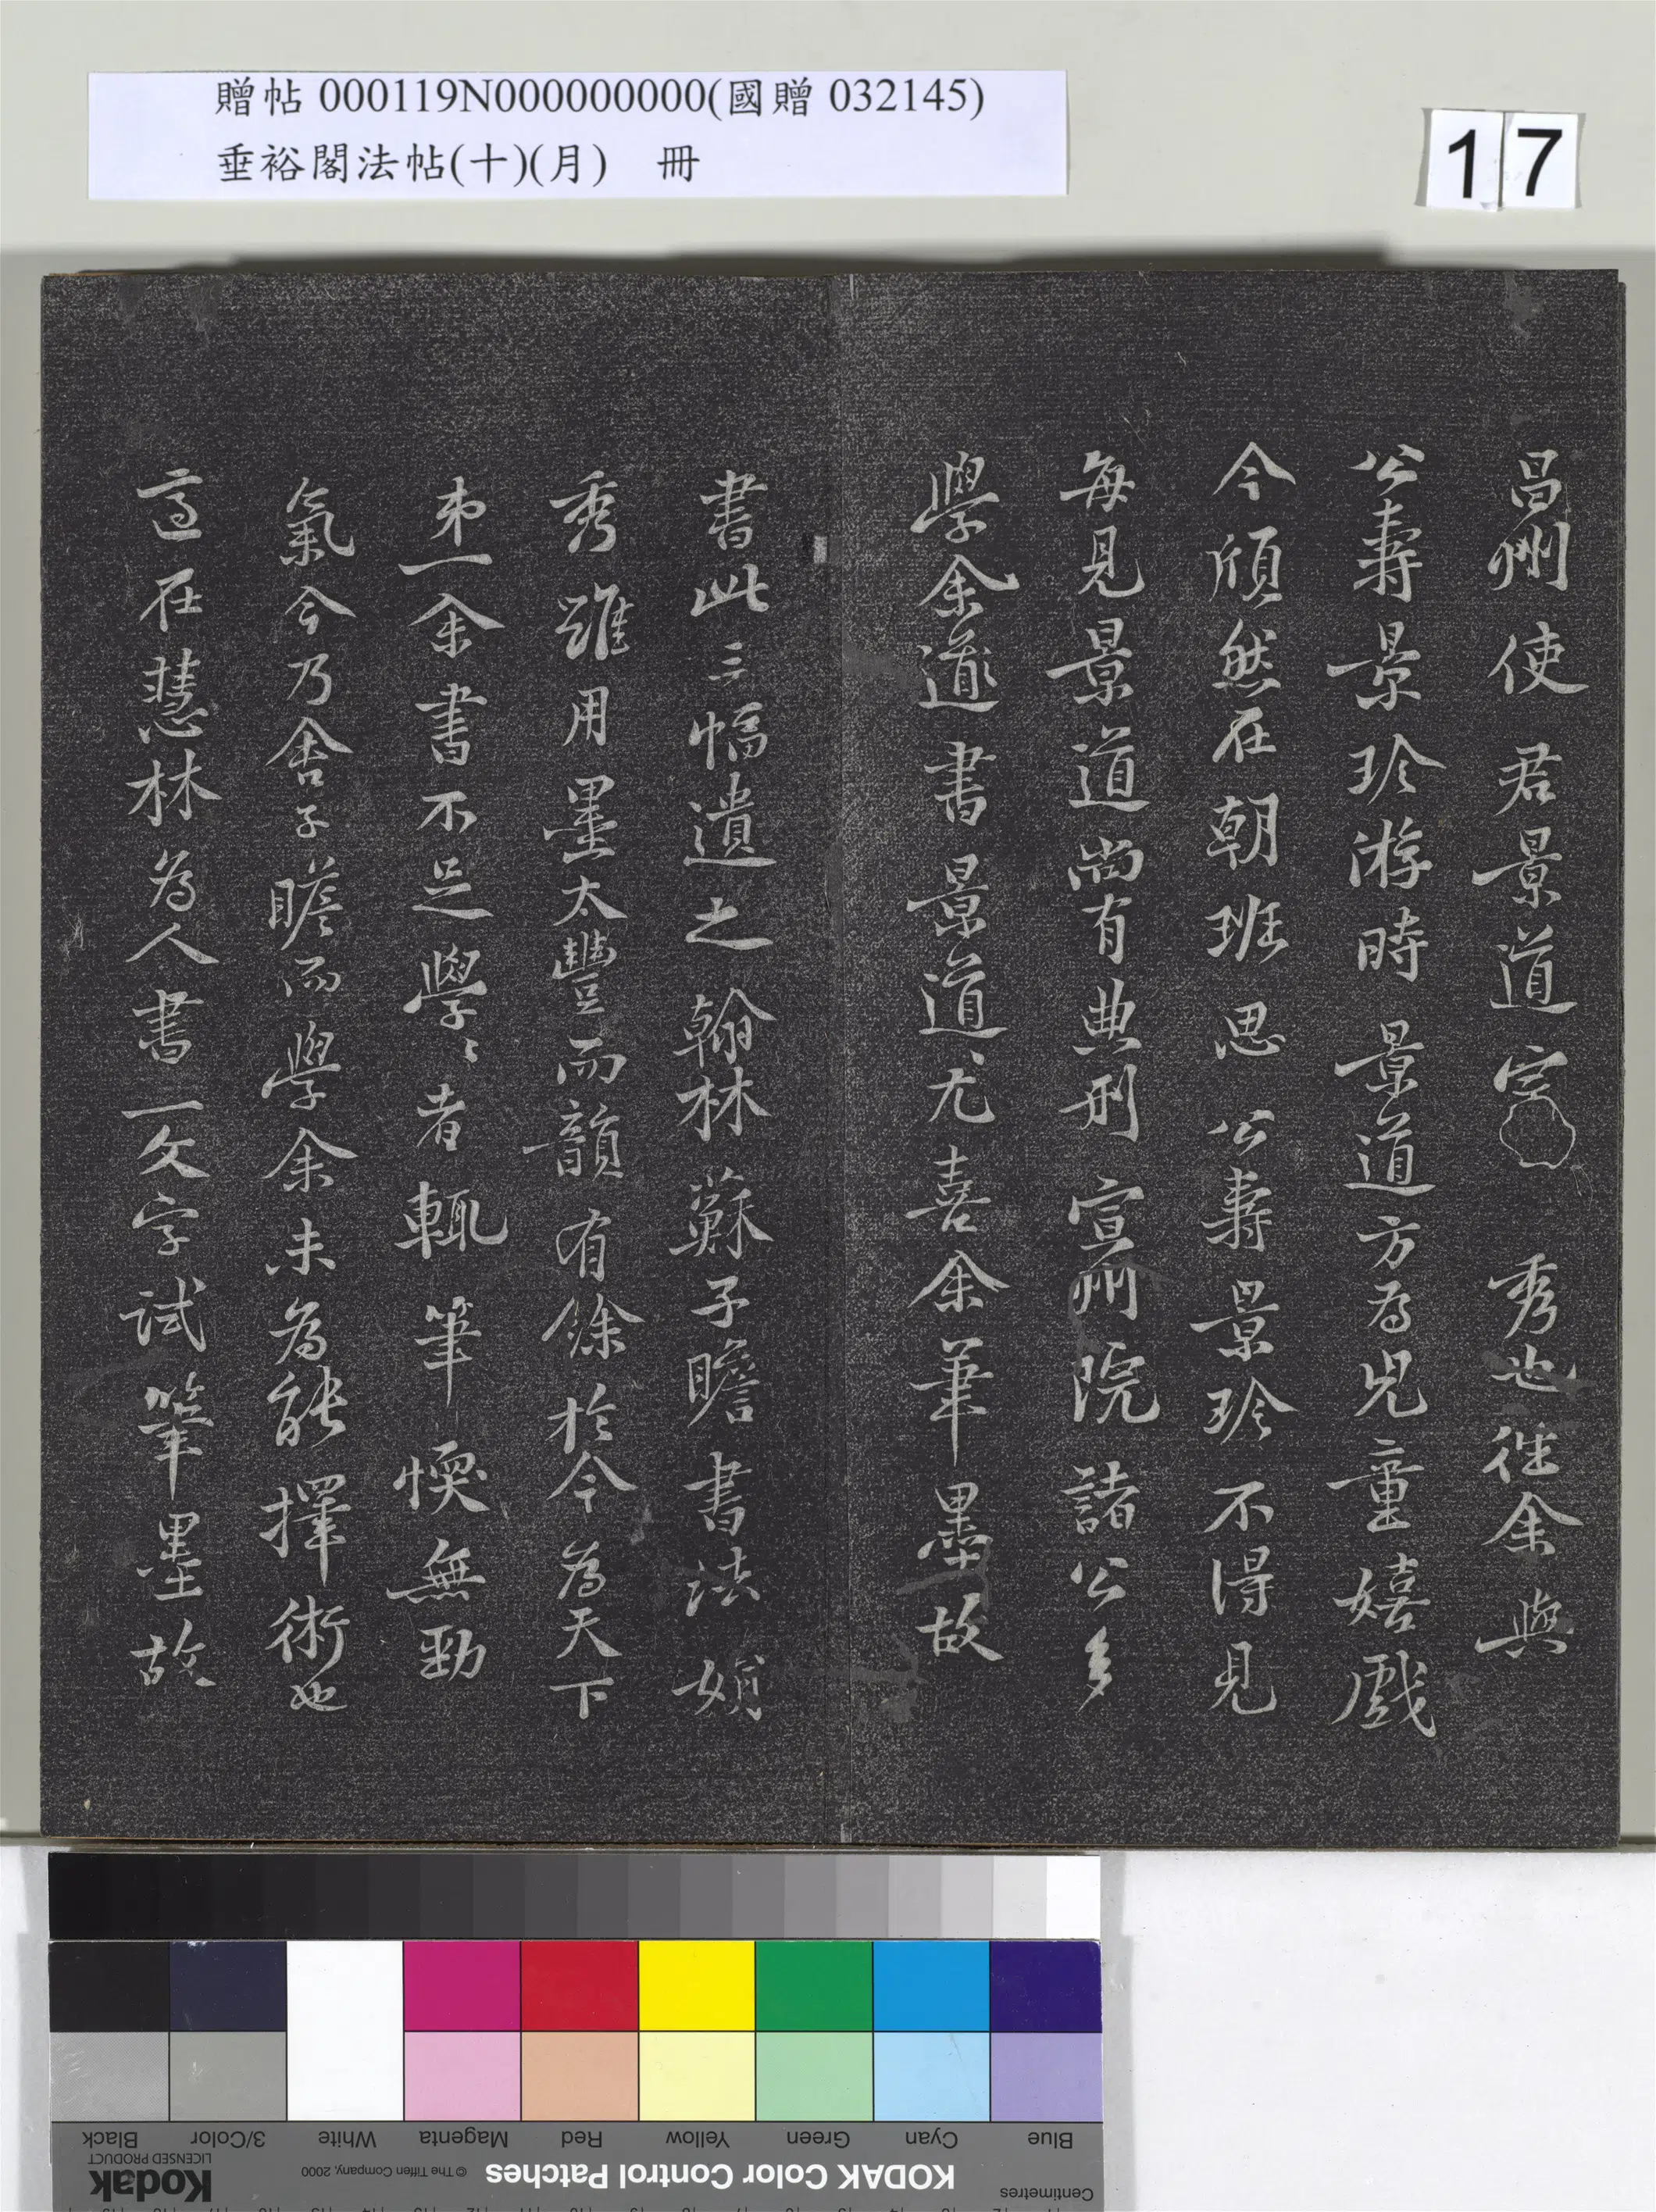 贈帖 000119N000000000(國贈 032145)
垂裕閣法帖(十)(月) 冊
17
昌州使君景道宗秀也往余與
公壽景珍游時景道方為兒童嬉戲
今頎然在朝班思公壽景珍不得見
每見景道尚有典刑宣州院諸公多
學余道書景道尤喜余筆墨故
書此三幅遺之翰林蘇子瞻書法娟
秀雖用墨太豐而韻有餘於今為天下
弟一余書不足學學者輒筆愞無勁
氣今乃舍子瞻而學余未為能擇術也
適在慧林為人書一文字試筆墨故
Black
3/Color
White
Magenta
Red
Yellow
Green
Cyan
Blue
Kodak
LICENSED PRODUCT
© The Tiffen Company, 2000
KODAK Color Control Patches
Centimetres